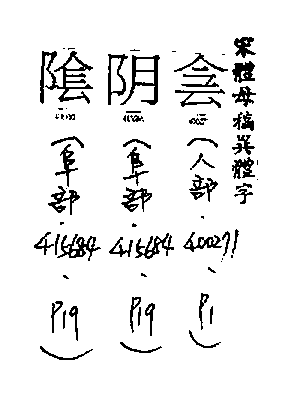 宋體母稿異體字
(人部.400271、P1)
阴(阜部.415684、P19)
(阜部.415684、P19)